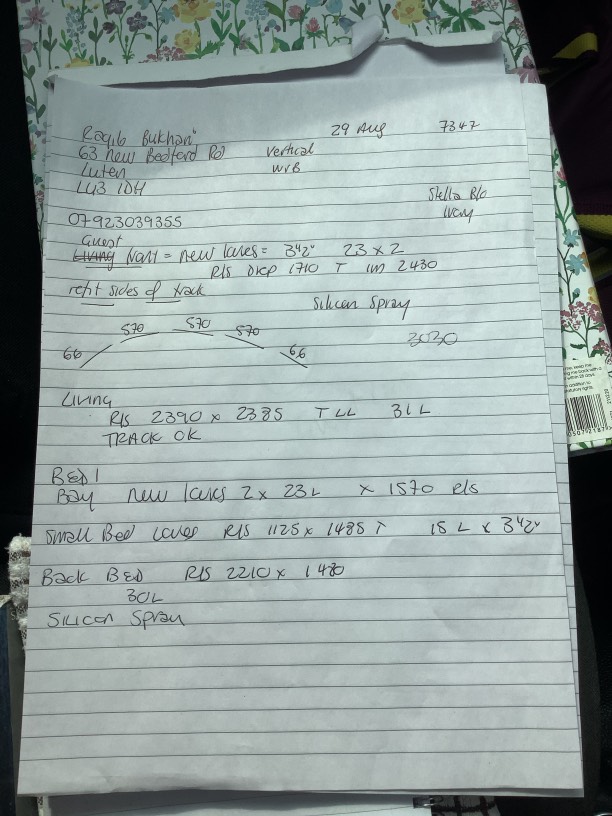 Raqib Bukhari 29 Aug 7347
63 New Bedford Rd Vertical
Luten WVB
LU3 1DH
Stella B/o
Ivory
07923039355
Guest
Living Vari = new lovres = 3½" 23 x 2
R/s Drop 1710 T 1m 2430
refit sides of track
Silicon Spray
570 570 570
66 66 3030
Living
R/s 2390 x 2385 T LL 31L
TRACK OK
BED 1
Bay new lovres 2x 23L x 1570 R/s
Small Bed Lovres R/s 1125 x 1485 T 15 L x 3½"
Back BED R/s 2210 x 1480
30L
SILICON SPRAY